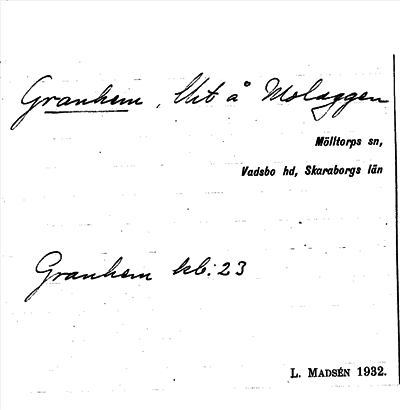 Granhem, Utt å Molaggen
Mölltorps sn,
Vadsbo hd, Skaraborgs län
Granhem kb: 23
L. MADSÉN 1932.